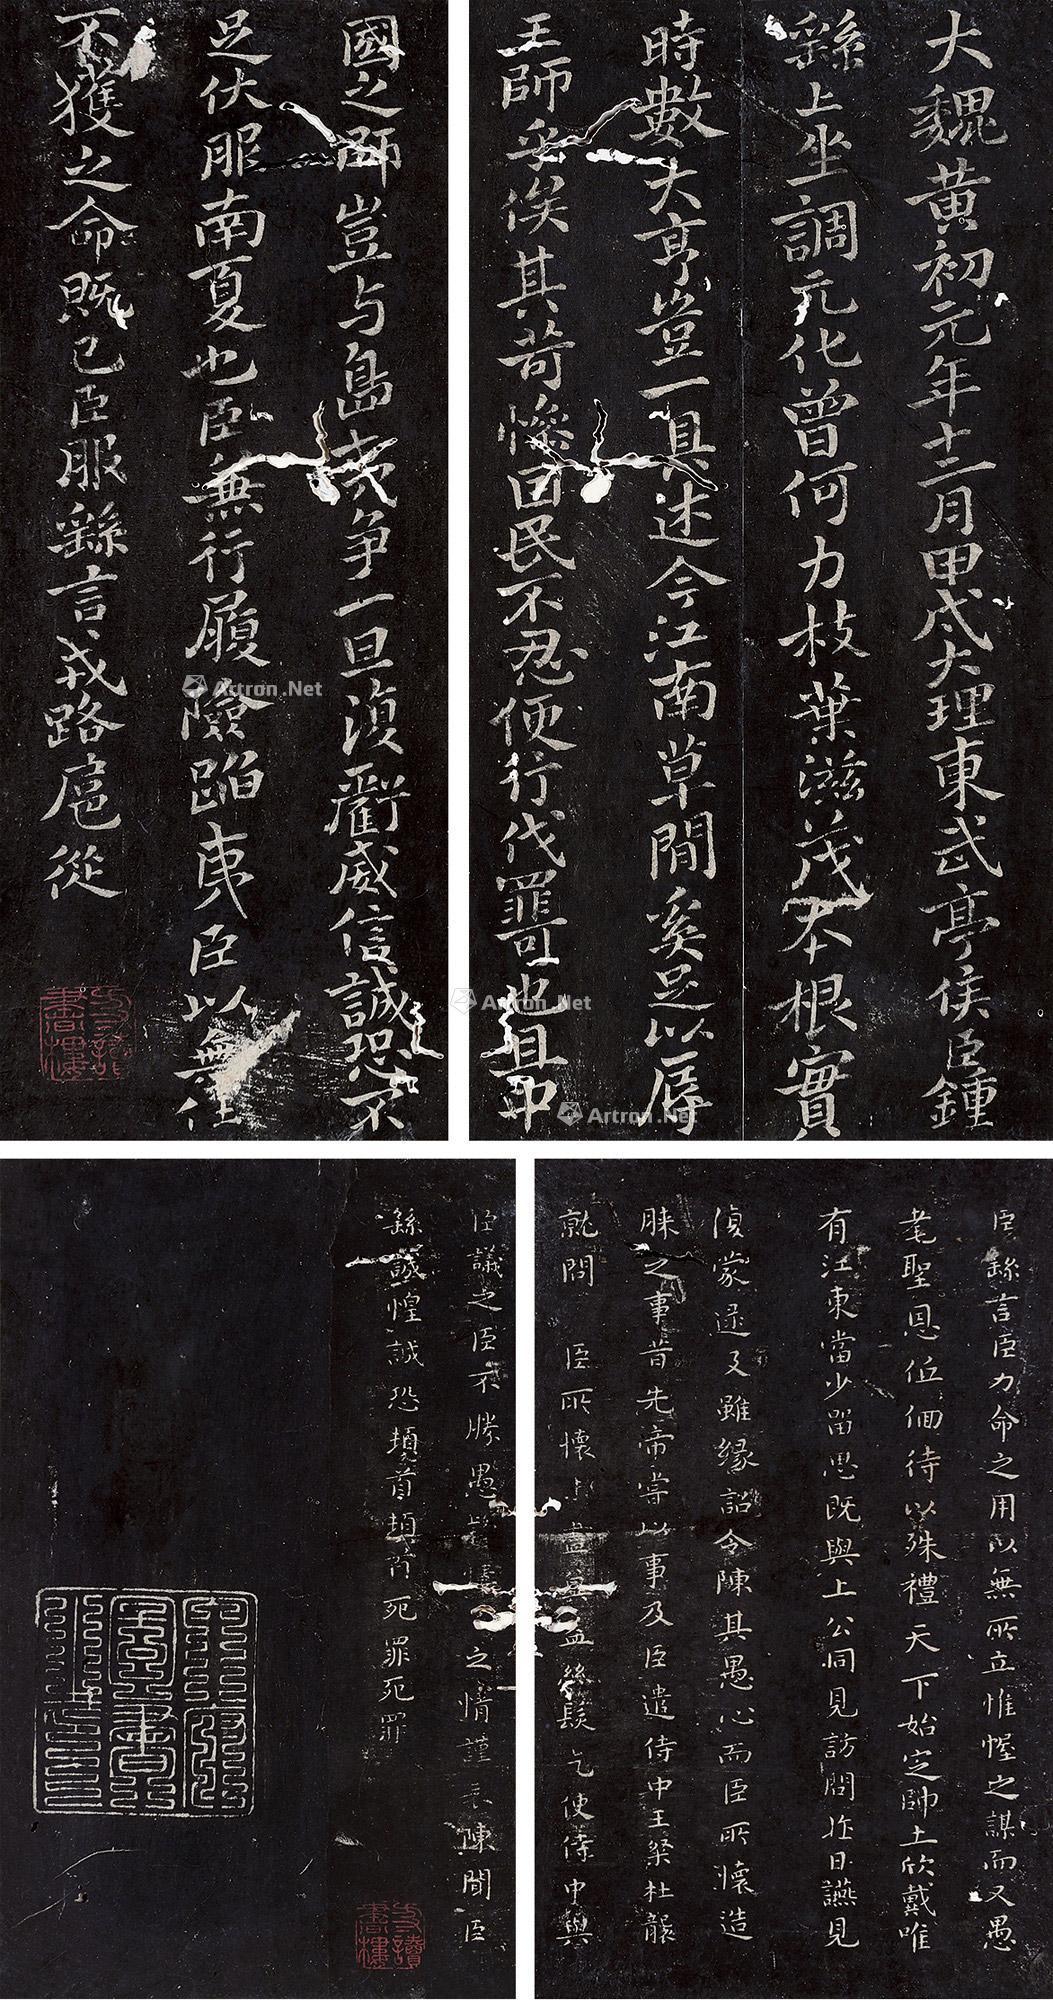 大魏黄初元年十二月甲戌大理東武亭侯臣鍾
繇上坐調元化曾何力枝葉滋茂本根實
時數大亨豈一具述今江南草間奚足以辱
王師乎俟其苛慘因民不忍便行伐罪可也且中
國之師豈与島夷争一旦復虧威信誠恐不
足伏服南夏也臣無行履險蹈夷臣以無任
不獲之命既已臣服繇言戎路扈從
臣繇言臣力命之用以無所立惟幄之謀而又愚
耄聖恩低佪待以殊禮天下始定師土欣戴唯
有江東當少留思既與上公同見訪問昨日讌見
復蒙逮及雖緣詔令陳其愚心而臣所懷造
膝之事昔先帝嘗以事及臣遣侍中王粲杜襲
就問 臣所懷 絲髮 乞使侍中與
臣議之臣不勝愚 之情謹表陳聞臣
繇誠惶誠恐頓首頓首死罪死罪
Artron.Net
Artron.Net
Artron.Net